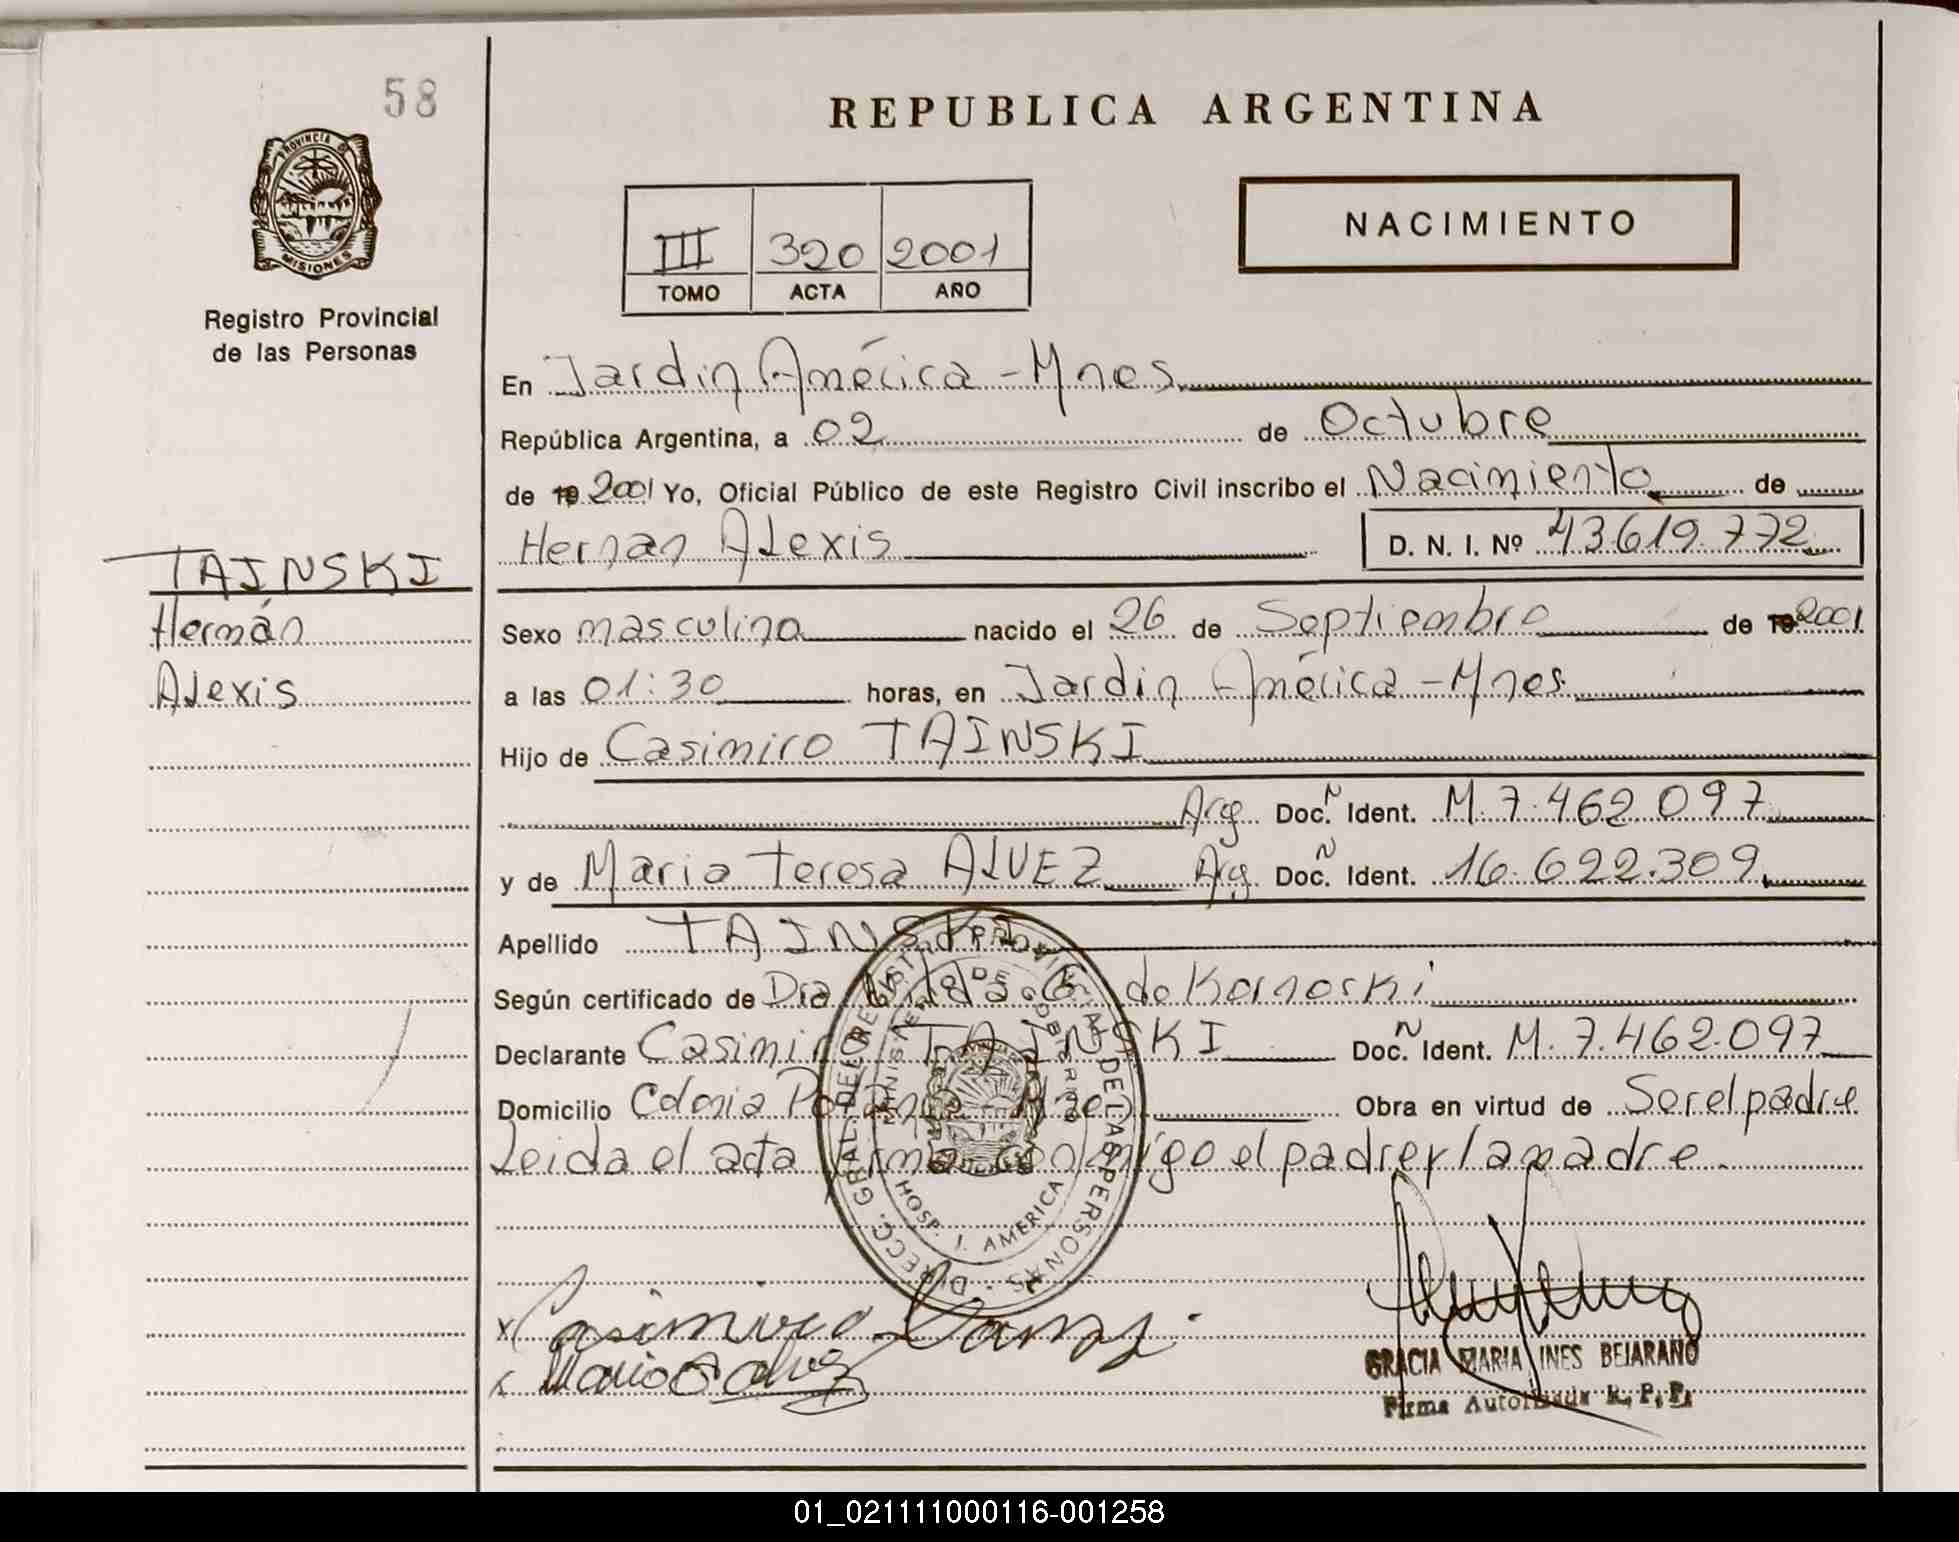 58
REPUBLICA ARGENTINA
PROVINCIA DE
MISIONES
Registro Provincial
de las Personas
III 320 2001
TOMO ACTA AÑO
NACIMIENTO
En Jardin América - Mnes.
República Argentina, a 02 de Octubre
de 19 2001 Yo, Oficial Público de este Registro Civil inscribo el Nacimiento de
Hernan Alexis D. N. I. Nº 43.619.772
TAINSKI
Hernán
Alexis
Sexo masculino nacido el 26 de Septiembre de 19 2001
a las 01:30 horas, en Jardin América - Mnes.
Hijo de Casimiro TAINSKI
Arg. Doc. N Ident. M. 7.462.097
y de Maria Teresa ALVEZ Arg. Doc. N Ident. 16.622.309
Apellido TAINSKI
Según certificado de Dra. de Kornoski
Declarante Casimiro TAINSKI Doc. N Ident. M. 7.462.097
Domicilio Colonia Obra en virtud de Ser el padre
Leida el acta firma conmigo el padre y la madre.
DIRECC. GRAL. DEL REGISTRO PROVINCIAL DE LAS PERSONAS
MINISTERIO DE GOBIERNO
HOSP. J. AMERICA
x Casimiro
x
GRACIA MARIA INES BEJARANO
Firma Autorizada R. P. P.
01_021111000116-001258